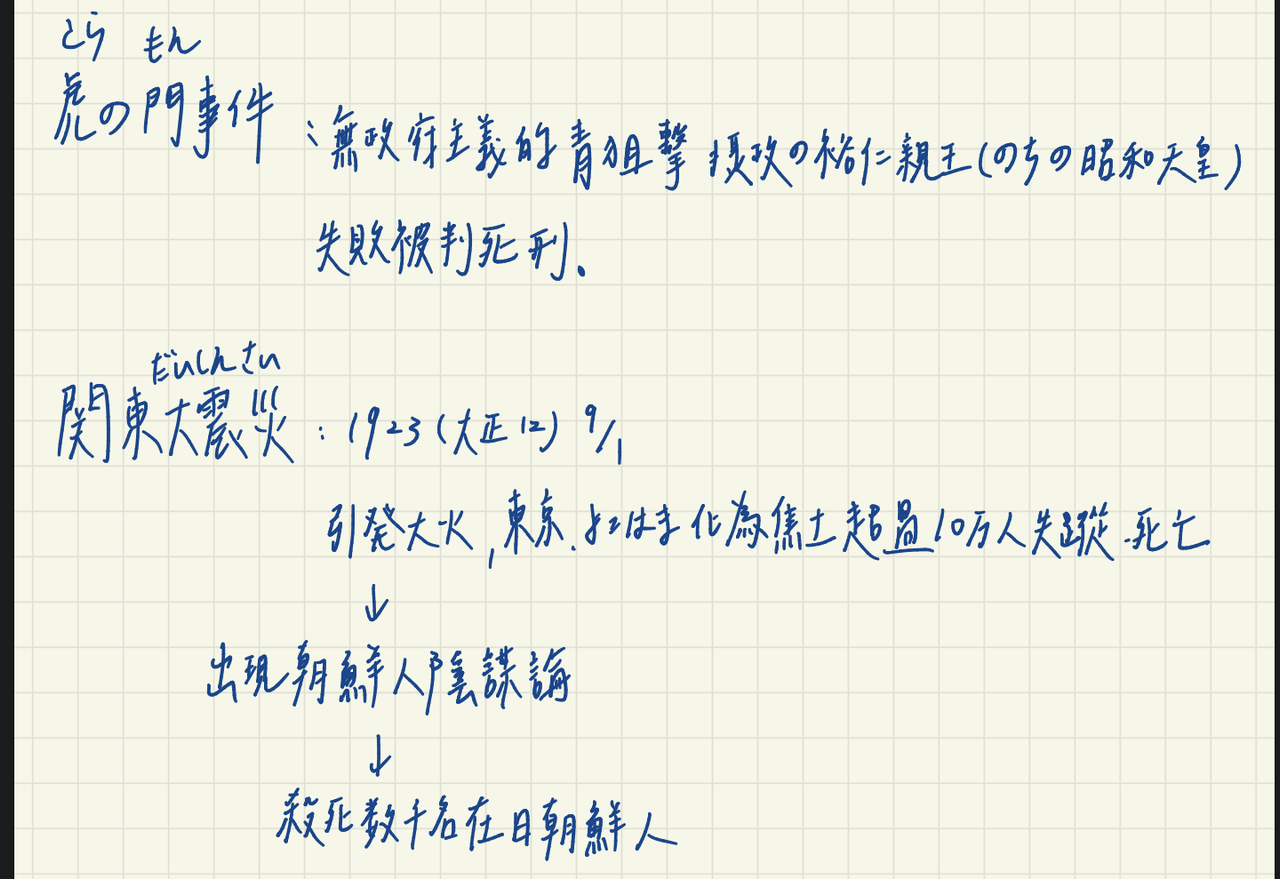 とら もん
虎の門事件：無政府主義的青狙撃 摂政の裕仁親王(のちの昭和天皇)
失敗被判死刑.
だいしんさい
関東大震災：1923(大正12) 9/1
引発大火,東京.よこはま化為焦土超過10万人失蹤.死亡
↓
出現朝鮮人陰謀論
↓
殺死数千名在日朝鮮人